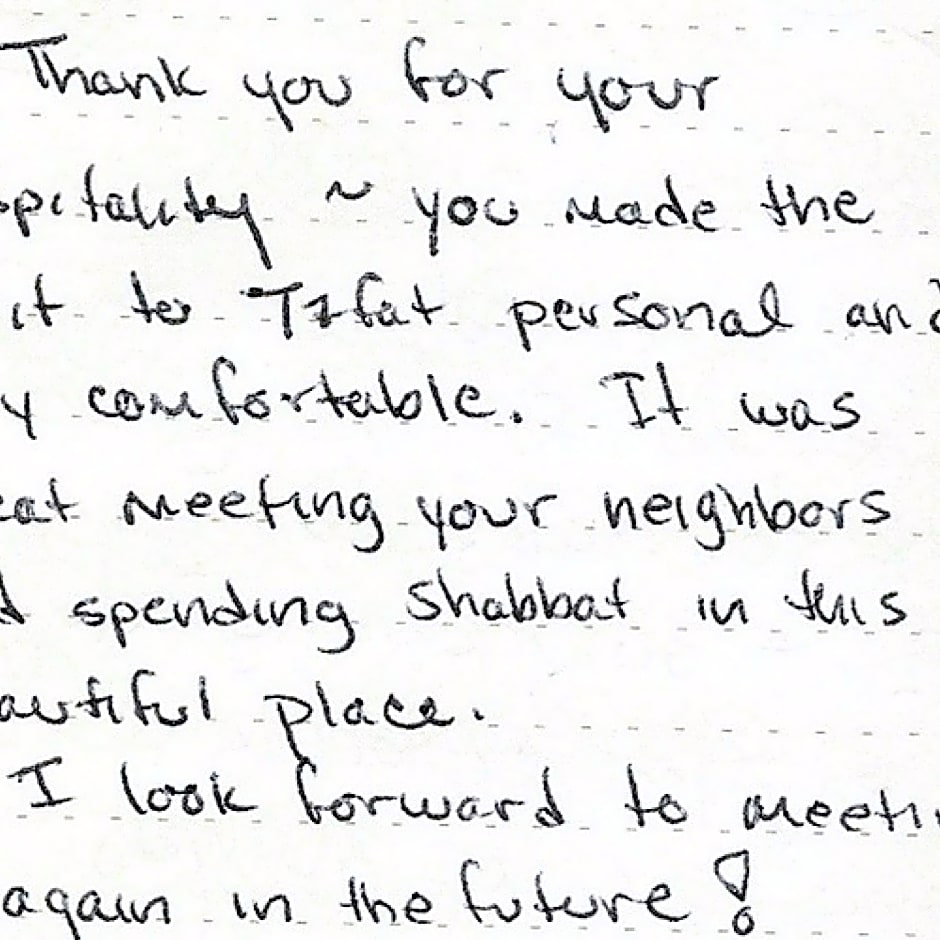 Thank you for your
spitality ~ you made the
it to Tzfat personal and
y comfortable. It was
eat meeting your neighbors
d spending Shabbat in this
autiful place.
I look forward to meeti
again in the future!